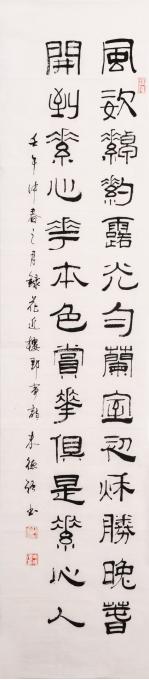 風姿綽約露光勻蘭室初秋勝晚春
開到素心花本色賞花俱是素心人
壬午仲春之月錄花近樓即事詩 朱 書